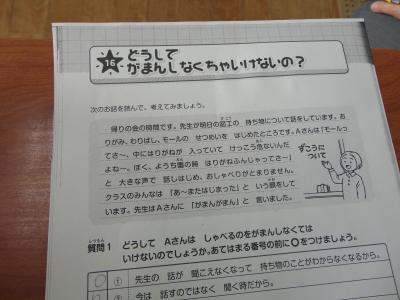 16 どうして
がまんしなくちゃいけないの？
次のお話を読んで、考えてみましょう。
帰りの会の時間です。先生が明日の図工の 持ち物について話をしています。お
りがみ、わりばし、モールの せつめいを はじめたところです。Aさんは「モールっ
てさ〜、中にはりがねが 入っていて けっこう危ないんだ
よねー。ぼく、ようち園の時 はりがねふんじゃってさー」
と 大きな声で 話しはじめ、おしゃべりがとまりません。
クラスのみんなは「あ〜またはじまった」と いう顔をして
います。先生はAさんに「がまんがまん」と 言いました。
ずこうに
ついて
質問1 どうして Aさんは しゃべるのをがまんしなくては
いけないのでしょうか。あてはまる番号の前に○をつけましょう。
① 先生の 話が 聞こえなくなって 持ち物のことがわからなくなるから。
② 今は 話すのではなく 聞く時だから。